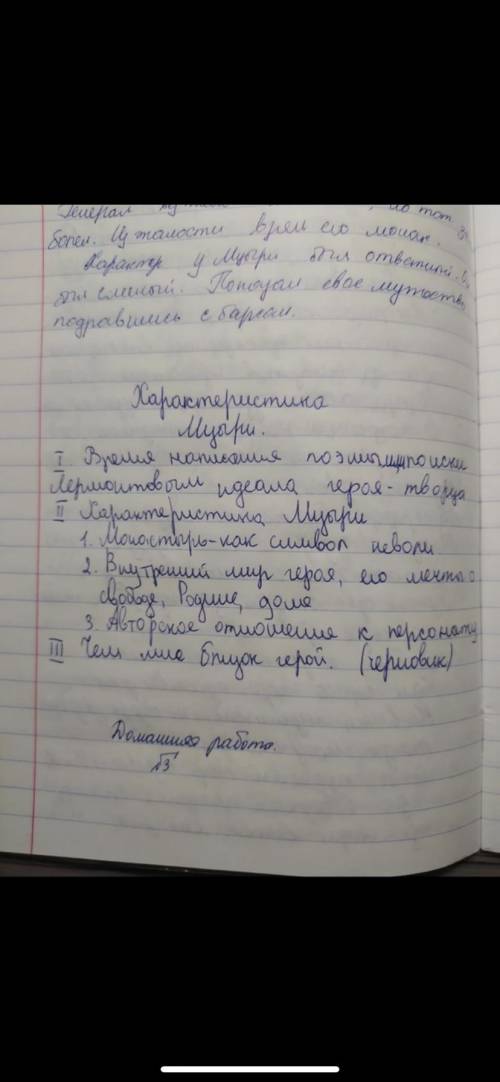 Генерал
болел. Из жалости взял его монах.
Характер у Мцыри был ответный.
был смелый. Показал свое мужество
подравшись с барсом.
Характеристика
Мцыри.
I Время написания поэмы поиски
Лермонтовым идеала героя-творца
II Характеристика Мцыри
1. Монастырь-как символ неволи
2. Внутренний мир героя, его мечты о
свободе, Родине, доме
3. Авторское отношение к персонажу
III Чем мне близок герой. (черновик)
Домашняя работа.